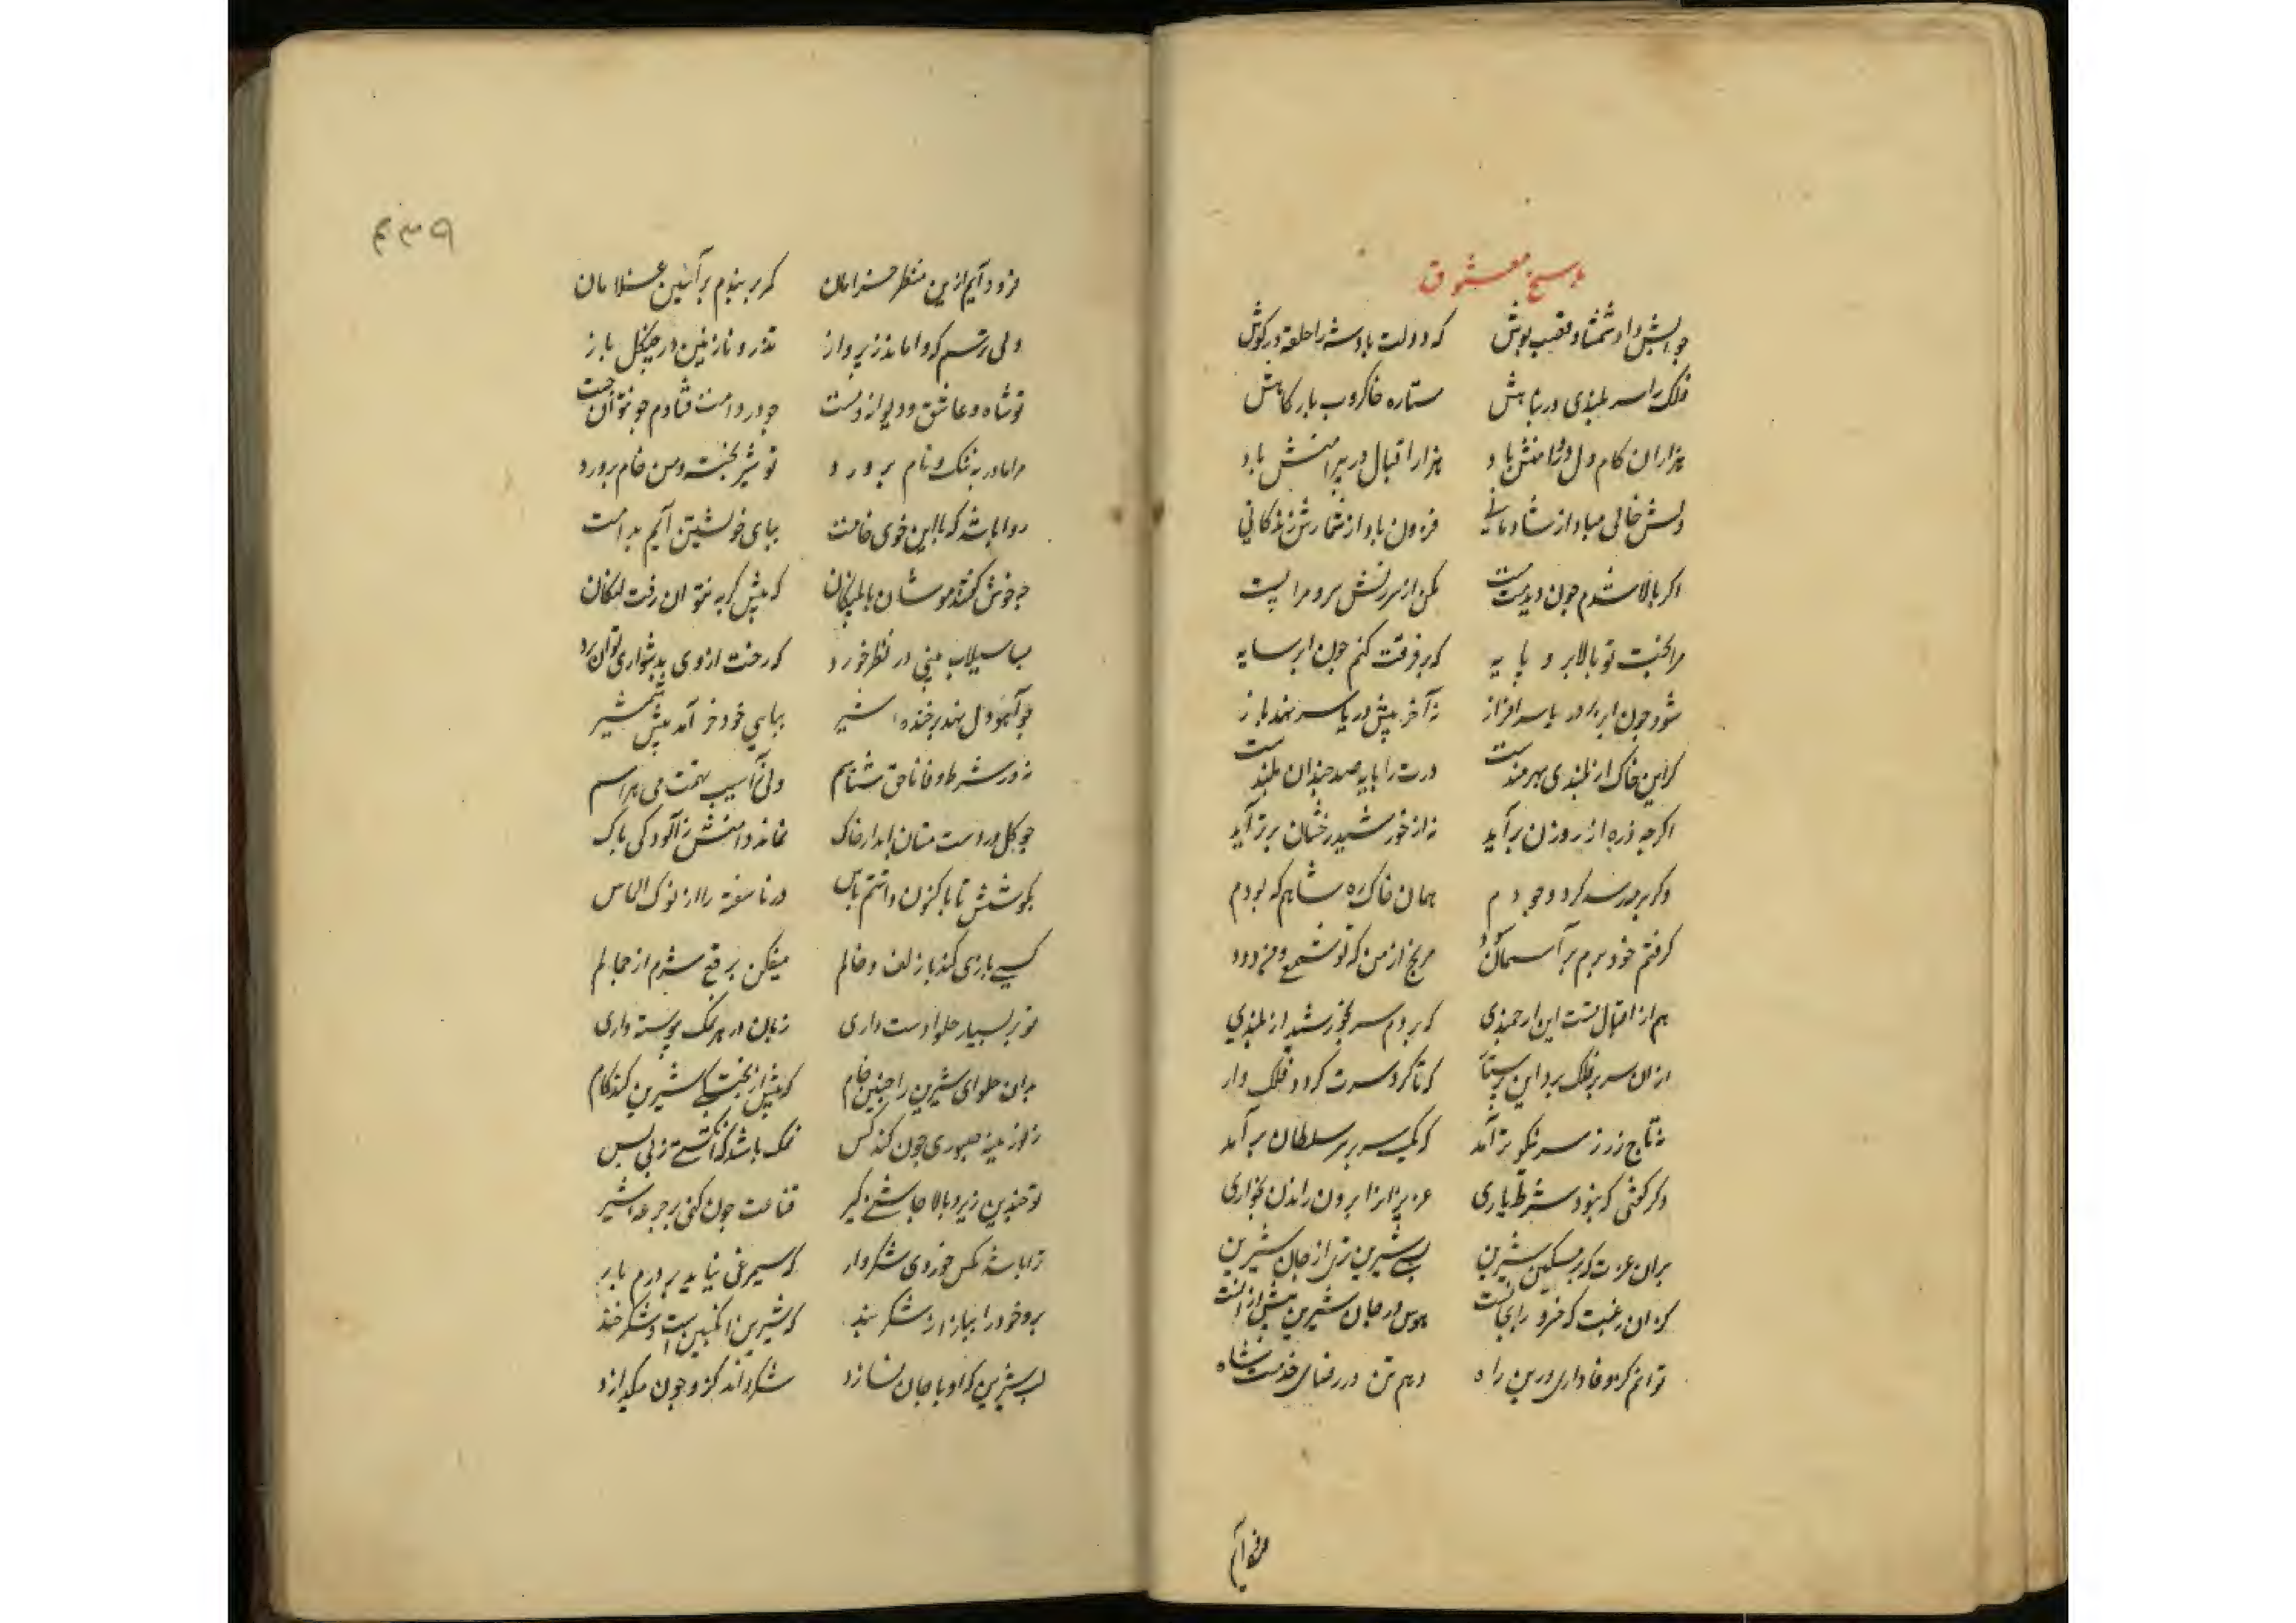 پاسخ معشوق
جوابش داد شمشاد قصب پوش که دولت باد شه را حلقه در گوش
فلک را سر بلندی در پناهش ستاره خاکروب بارکاهش
هزاران کام دل در دامنش باد هزار اقبال در پیرامنش باد
دلش خالی مباد از شادمانی فزون باد از شمارش زندکانی
اکر بالا شدم جون دیدمت مست مکن از سرزنش سرو مرا پست
مرا بخت تو بالا برد پایه که بر فرقت کنم جون ابر سایه
شود جون ابر بر دریا سرافراز نه آخر پیش دریا سر نهد باز
کر این خاک از بلندی بهره مندست درت را پایه صد جندان بلندست
اکرجه ذره از روزن برآید نه از خورشید رخشان برتر آید
وکر بر مه رسد کرد وجودم همان خاک ره شاهم که بودم
کرفتم خود برم بر آسمان دود مرنج از من که تو شمعی و من دود
هم از اقبال تست این ارجمندی که بردم سر بخورشید از بلندی
ازان سر بر فلک برد این پرستار که تا کرد سرت کردد فلک وار
نه تاج زر ز سر نیکو تر آمد که یک سر بر سر سلطان برآمد
وکر کفتی که نبود شرط یاری عزیزان را برون راندن بخواری
بران عزت که بر مسکین شیرین بسی شیرین تری از جان شیرین
کر آن رغبت که خسرو را بجانست هوس در جان شیرین بیش از آنست
توانم کز وفاداری درین راه دهم تن در رضای خدمت شاه
فرود آیم
۴۳۹
فرود آیم ازین منظر خرامان کمر بربندم بر آئین غلامان
ولی ترسم که واماند ز پرواز تذرو نازنین در جنکل باز
تو شاه و عاشق و دیوانه و مست جو در دامت فتادم جون توان جست
مرا مادر به ننک و نام پرورد تو شیر پخته و من خام پرورد
روا باشد که با این خوی خامت بپای خویشتن آیم بدامت
جه خوش کفتند موشان با پلنکان که پیش کربه نتوان رفت لنکان
بسا سیلاب بینی در نظر خورد که رخت از وی بدشواری توان برد
جو آهو دل نهد بر خنده شیر بپای خود خرامد پیش شمشیر
نه در شرط وفا ناحق شناسم ولی ز آسیب تهمت می هراسم
جو کل در دست مستان بد ار خاک نماند دامنش ز آلودکی پاک
بکوشش تا باکنون داشتم پاس در ناسفته را از نوک الماس
کسی بازی کند با زلف و خالم میفکن برقع شرم از جمالم
تو بر بسیار حلوا دست داری زبان در هر نمک پیوسته داری
بدان حلوای شیرین را جنین خام که پیش از پختکی شیرین کند کام
ز لوزینه صبوری جون کند کس نمک باشد که انکشتی زنی بس
تو جندین زیر و بالا جاشنی کیر قناعت جون کنی بر جرعه شیر
ترا باشد مکس خوردی شکروار که سیمرغی نیاید بر درم بار
برو خود را ببازار شکر بند که شیرین انکبین است و شکر خند
لب شیرین که او با جان نسازد شکر داند کزو جون میکدازد